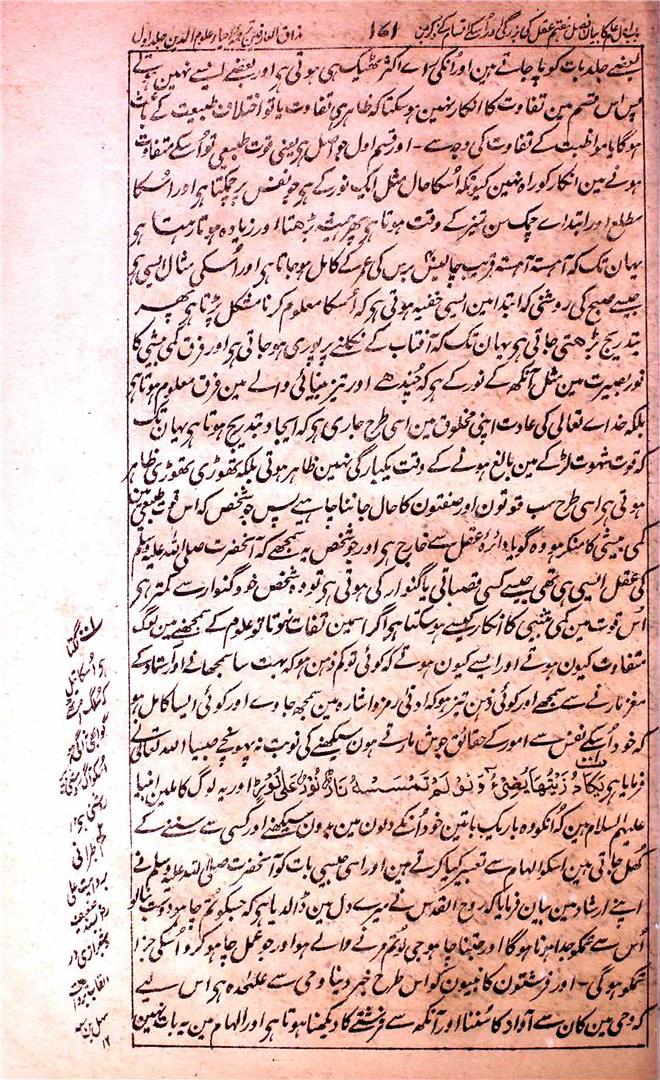 باب اول علم کا بیان فصل ہفتم عقل کی بزرگی اور اسکے اقسام کے ذکر مین ۱۶۱ مذاق العارفین ترجمہ احیاء علوم الدین جلد اول
بعضے جلد بات کو پا جاتے ہین اور اُنکی رائے اکثر ٹھیک ہی ہوتی ہی اور بعضے ایسے نہین ہوتے
پس اس قسم مین تفاوت کا انکار نہین ہو سکتا کہ ظاہر ہی تفاوت یا تو اختلاف طبیعت کے باعث
ہوگا یا مواظبت کے تفاوت کی وجہ سے ۔ اور قسم اول جو اصل ہی یعنی قوت طبیعی تو اُسکے متفاوت
ہونے مین انکار کو راہ نہین کیونکہ اُسکا حال مثل ایک نور کے ہی جو نفس پر چمکتا ہی اور اسکا
مطلع اور ابتداے چمک سن تمیز کے وقت ہوتا ہی پھر ہمیشہ بڑھتا اور زیادہ ہوتا رہتا ہی
یہان تک کہ آہستہ آہستہ قریب چالیس برس کی عمر کے کامل ہو جاتا ہی اور اُسکی مثال ایسی ہی
جیسے صبح کی روشنی کہ ابتدا مین ایسی خفیہ ہوتی ہی کہ اُسکا معلوم کرنا مشکل پڑتا ہی پھر
بتدریج بڑھتی جاتی ہی یہان تک کہ آفتاب کے نکلنے پر پوری ہو جاتی ہی اور فرق کمی بیشی کا
نور بصیرت مین مثل آنکھ کے نور کے ہی کہ چُندھے اور تیز بینائی والے مین فرق معلوم ہوتا ہی
بلکہ خداے تعالی کی عادت اپنی مخلوق مین اسی طرح جاری ہی کہ ایجاد بتدریج ہوتا ہی یہان تک
کہ قوت شہوت لڑکے مین بالغ ہونے کے وقت یکبارگی نہین ظاہر ہوتی بلکہ تھوڑی تھوڑی ظاہر
ہوتی ہی اسی طرح سب قوتون اور صفتون کا حال جاننا چاہیے پس جو شخص کہ اس قوت طبیعی مین
کمی بیشی کا منکر ہو وہ گویا دائرۂ عقل سے خارج ہی اور جو شخص یہ سمجھے کہ آنحضرت صلی اللہ علیہ وسلم
کی عقل ایسی ہی تھی جیسے کسی قصباتی یا گنوار کی ہوتی ہی تو وہ شخص خود گنوار سے کمتر ہی
اس قوت مین کمی بیشی کا انکار کیسے ہو سکتا ہی اگر اسمین تفاوت نہوتا تو علوم کے سمجھنے مین لوگ
متفاوت کیون ہوتے اور ایسے کیون ہوتے کہ کوئی تو کم ذہن ہو کہ بہت سا سمجھانے اور استاد کے
مغز مارنے سے سمجھے اور کوئی ذہن تیز ہو کہ ادنی رمز و اشارہ مین سمجھ جاوے اور کوئی ایسا کامل ہو
کہ خود اُسکے نفس سے امور کے حقائق جوش مارتے ہون سیکھنے کی نوبت نہ پہونچے جیسا اللہ تعالی
فرمایا ہی یَکَادُ زَیْتُهَا یُضِیْءُ وَلَوْ لَمْ تَمْسَسْهُ نَارٌ نُوْرٌ عَلٰی نُوْرٍ اور یہ لوگ کاملین انبیا
علیہم السلام ہین کہ اُنکو وہ باریک باتین خود اُنکے دلون مین بدون سیکھنے اور کسی سے سننے کے
کُھل جاتی ہین اسکو الہام سے تعبیر کیا کرتے ہین اور اسی جیسی بات کو آنحضرت صلی اللہ علیہ وسلم نے
اپنے ارشاد مین بیان فرمایا کہ روح القدس نے میرے دل مین ڈال دیا ہی کہ جسکو تم چاہو دوست بنالو
اُس سے تمکو جدا ہونا ہوگا اور جتنا چاہو جی لو تم مرنے والے ہو اور جو عمل چاہو کرو اُسکی جزا
تمکو ہوگی ۔ اور فرشتون کا نبیون کو اس طرح خبر دینا وحی سے علٰحدہ ہی اس لیے
کہ وحی مین کان سے آواز کا سُننا اور آنکھ سے فرشتے کا دیکھنا ہوتا ہی اور الہام مین یہ بات نہین
لگتا
ہی اُسکا تیل
کہ سُلگ اٹھے
گو ابھی نہ لگی ہو
اُسکو آگ روشنی پر
روشنی ہی ۱۲
طبرانی
بروایت علی
سہل بن سعد
۱۲